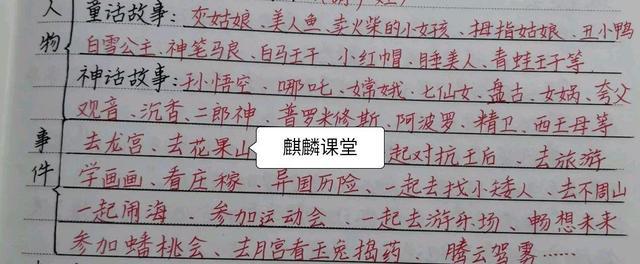 人 童话故事：灰姑娘、美人鱼、卖火柴的小女孩、拇指姑娘、丑小鸭
物 白雪公主、神笔马良、白马王子、小红帽、睡美人、青蛙王子等
神话故事：孙悟空、哪吒、嫦娥、七仙女、盘古、女娲、夸父
观音、沉香、二郎神、普罗米修斯、阿波罗、精卫、西王母等
事 去龙宫、去花果山 麒麟课堂 起对抗王后、去旅游
件 学画画、看庄稼、异国历险、一起去找小矮人、去不周山
一起闹海、参加运动会、一起去游乐场、畅想未来
参加蟠桃会、去月宫看玉兔捣药、腾云驾雾……